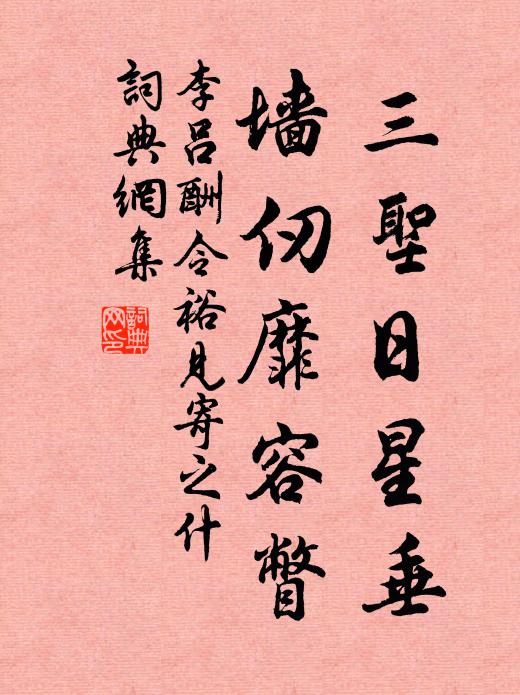 三聖日星垂
墙仞靡容瞥
李吕酬令裕見寄之什
詞典網集
詞典网印